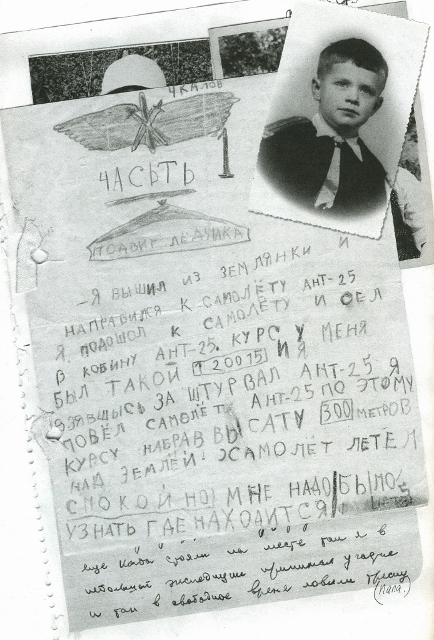 ЧКАЛОВ
ЧАСЬТЬ 1
ПОДВИГ ЛЕДУНКА
– Я ВЫШИЛ ИЗ ЗЕМЛЯНКИ И
НАПРАВИЛСЯ К САМОЛЁТУ АНТ-25
Я ПОДОШОЛ К САМОЛЁТУ И СЕЛ
В КОБИНУ АНТ-25. КУРС У МЕНЯ
БЫЛ ТАКОЙ 120015 И Я
ВЗЯВШЫСЬ ЗА ШТУРВАЛ АНТ-25 Я
ПОВЁЛ САМОЛЁТ АНТ-25 ПО ЭТОМУ
КУРСУ НАБРАВ ВЫСАТУ 300 МЕТРОВ
НАД ЗЕМЛЁЙ! САМОЛЁТ ЛЕТЕЛ
СПОКОЙНО! МНЕ НАДО БЫЛО
УЗНАТЬ ГДЕ НАХОДИТСЯ
еще когда стояли на месте там я в
небольшой экспедиции принимал участие
и там в свободное время ловили треску
(папа.)